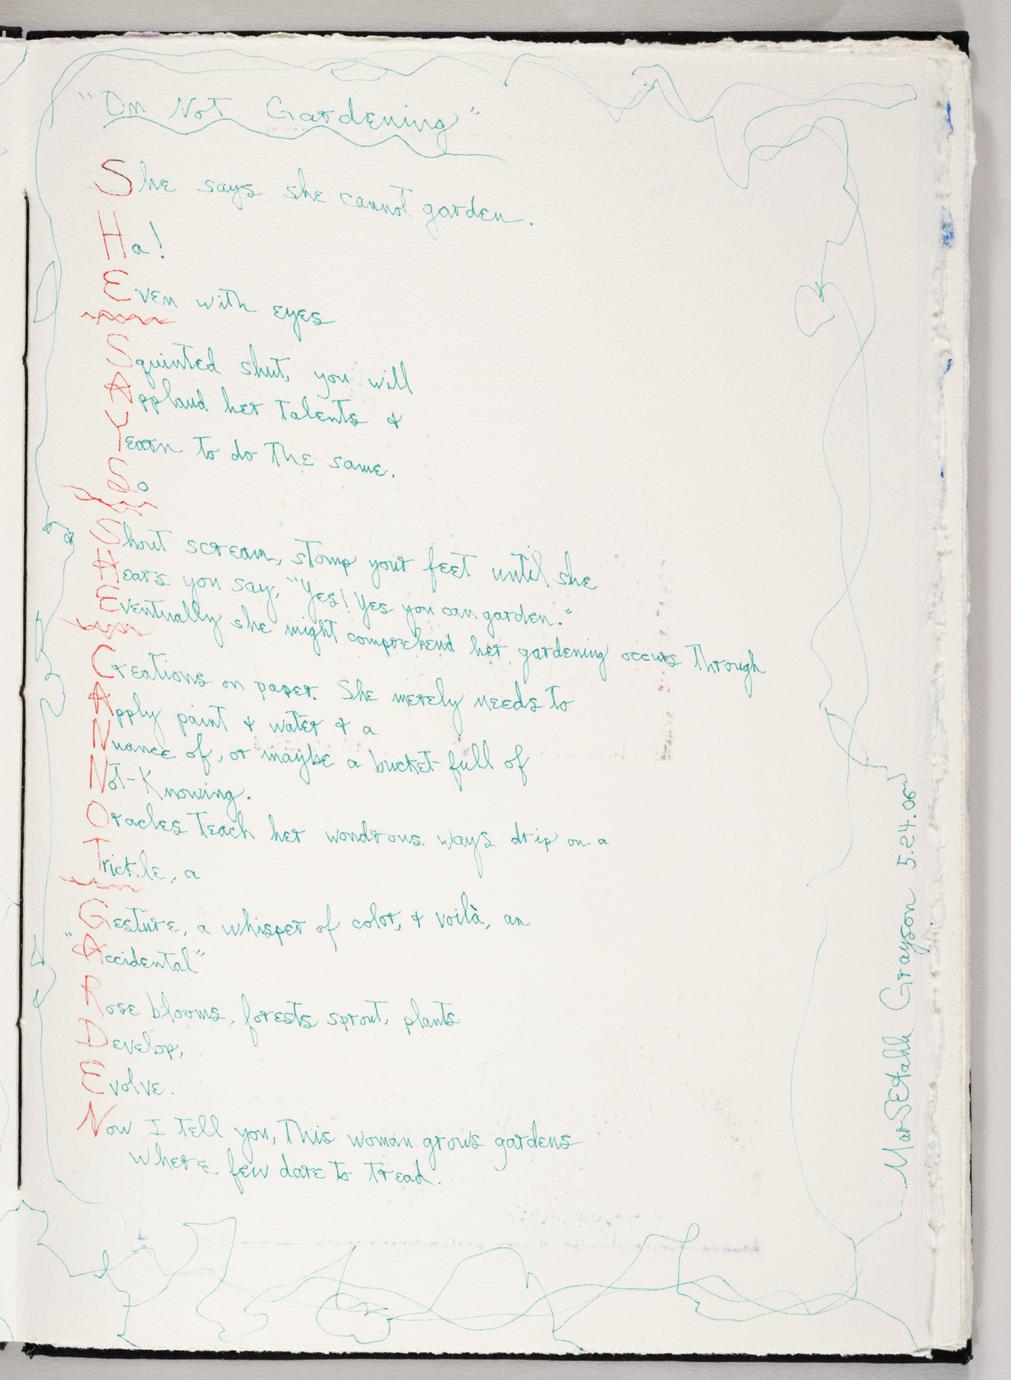 "On Not Gardening"
She says she cannot garden.
Ha!
Even with eyes
Squinted shut, you will
Applaud her talents &
Yearn to do the same.
So
Shout scream, stomp your feet until she
Hears you say, "Yes! Yes you can garden."
Eventually she might comprehend her gardening occurs through
Creations on paper. She merely needs to
Apply paint & water & a
Nuance of, or maybe a bucket full of
Not-Knowing.
Oracles Teach her wondrous ways drip on a
Trickle, a
Gesture, a whisper of color, & voilà, an
"Accidental"
Rose blooms, forests sprout, plants
Develop,
Evolve.
Now I tell you, This woman grows gardens
where few dare to tread.
Grayson 5.24.06